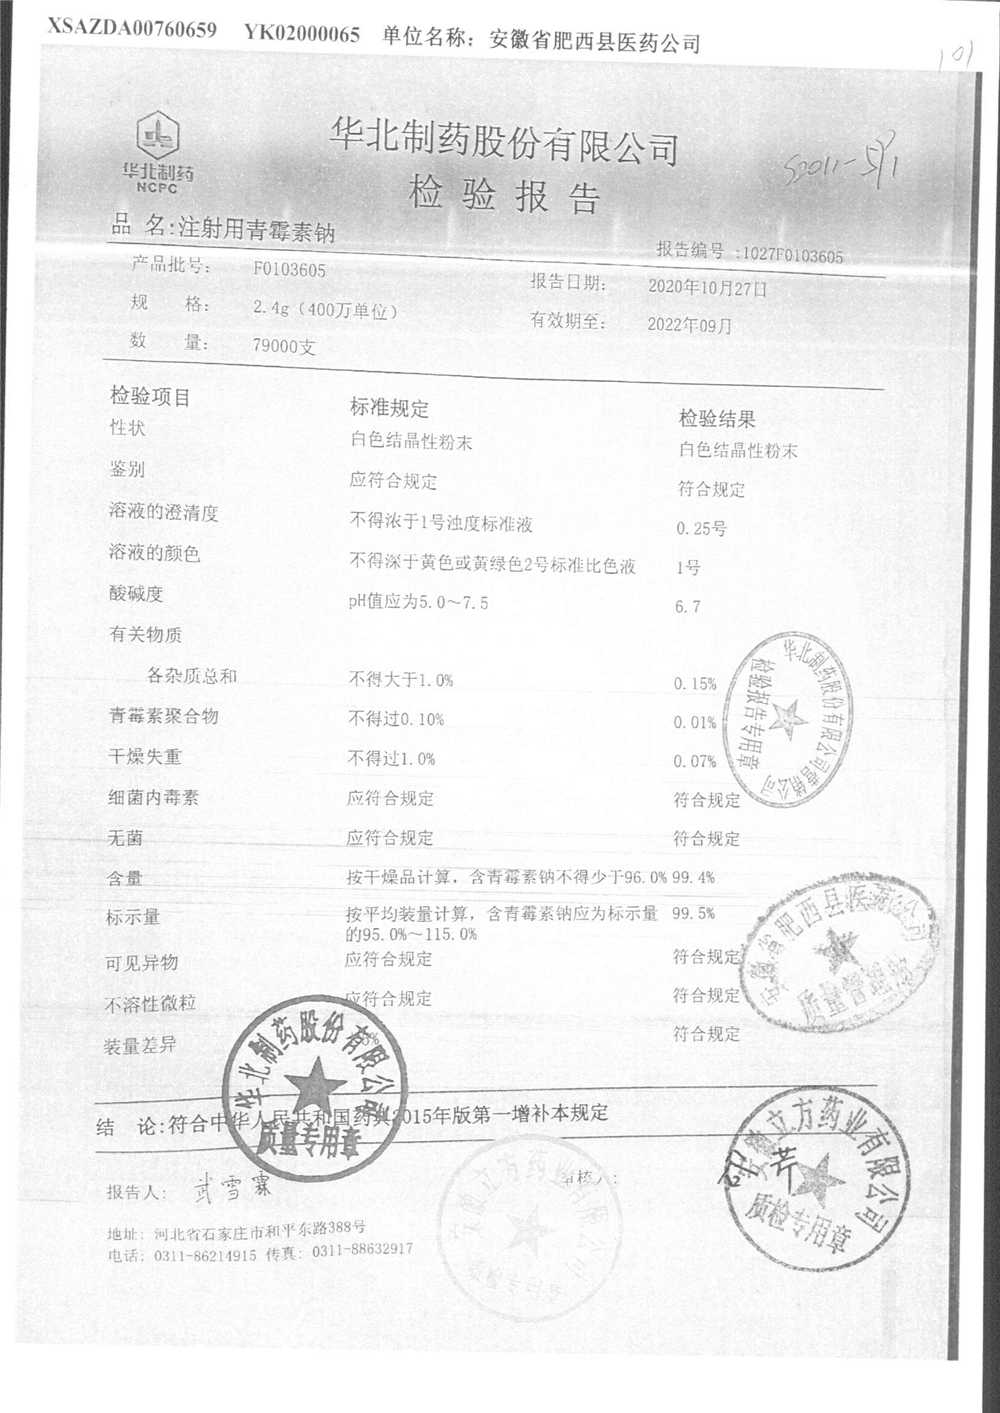 XSAZDA00760659 YK02000065 单位名称：安徽省肥西县医药公司
101
华北制药
NCPC
华北制药股份有限公司
检验报告
品 名:注射用青霉素钠
报告编号:1027F0103605
产品批号： F0103605 报告日期： 2020年10月27日
规 格： 2.4g（400万单位） 有效期至： 2022年09月
数 量： 79000支
检验项目 标准规定 检验结果
性状 白色结晶性粉末 白色结晶性粉末
鉴别 应符合规定 符合规定
溶液的澄清度 不得浓于1号浊度标准液 0.25号
溶液的颜色 不得深于黄色或黄绿色2号标准比色液 1号
酸碱度 pH值应为5.0～7.5 6.7
有关物质
各杂质总和 不得大于1.0% 0.15%
青霉素聚合物 不得过0.10% 0.01%
干燥失重 不得过1.0% 0.07%
细菌内毒素 应符合规定 符合规定
无菌 应符合规定 符合规定
含量 按干燥品计算，含青霉素钠不得少于96.0% 99.4%
标示量 按平均装量计算，含青霉素钠应为标示量 99.5%
的95.0%～115.0%
可见异物 应符合规定 符合规定
不溶性微粒 应符合规定 符合规定
装量差异 符合规定
结 论:符合中华人民共和国药典2015年版第一增补本规定
报告人： 武雪霖 审核人：
地址：河北省石家庄市和平东路388号
电话：0311-86214915 传真：0311-88632917
华北制药股份有限公司营销公司
检验报告专用章
安徽省肥西县医药公司
质量管理
华北制药股份有限公司
质量专用章
安徽立方药业有限公司
质检专用章
安徽立方药业有限公司